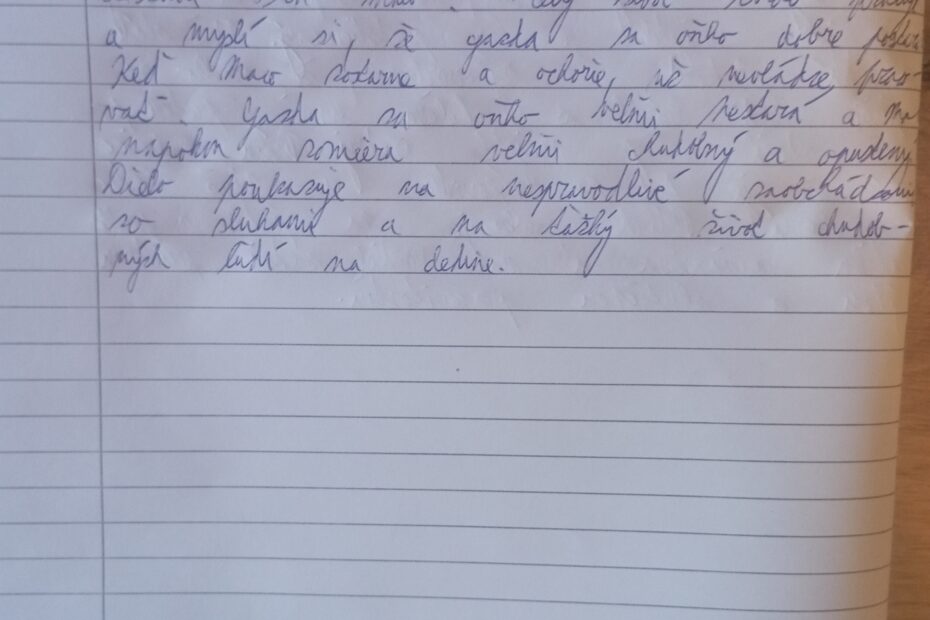 a myslí si, že gazda sa oňho dobre
Keď Maco zostarne a ochorie, už nevládze praco-
vať. Gazda sa oňho veľmi nestará a Ma
napokon zomiera veľmi chudobný a opustený
Dielo poukazuje na nespravodlivé zaobchádzanie
so sluhami a na ťažký život chudob-
ných ľudí na dedine.